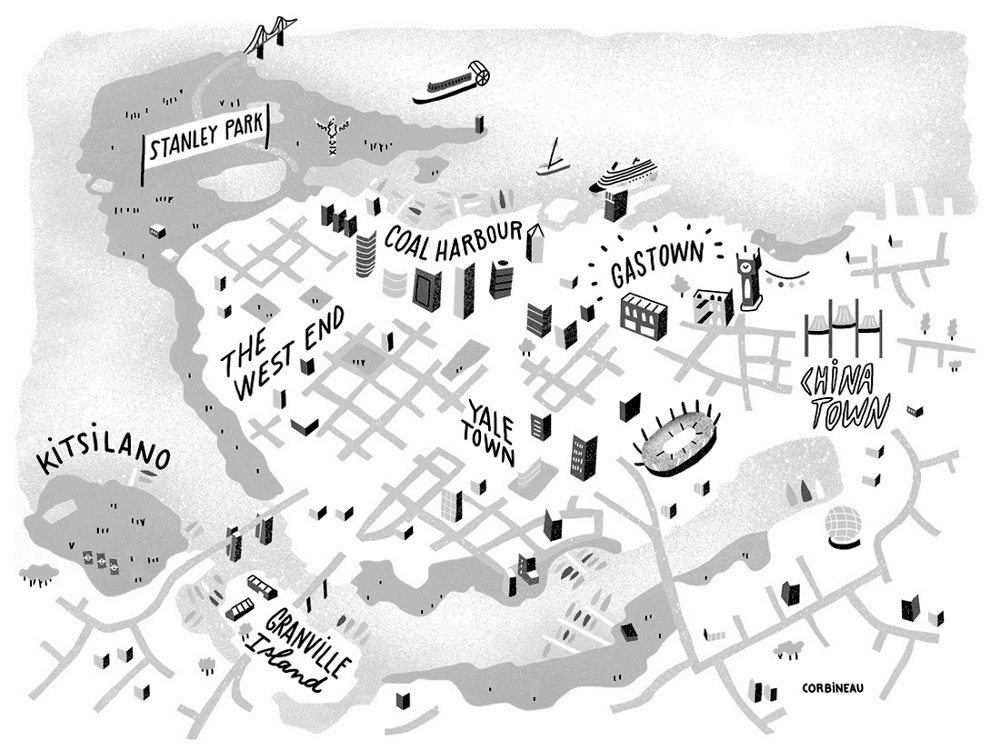 STANLEY PARK
COAL HARBOUR
GASTOWN
THE
WEST END
CHINA
TOWN
YALE
TOWN
KiTSiLANO
GRANVILLE
Island
CORBiNEAU